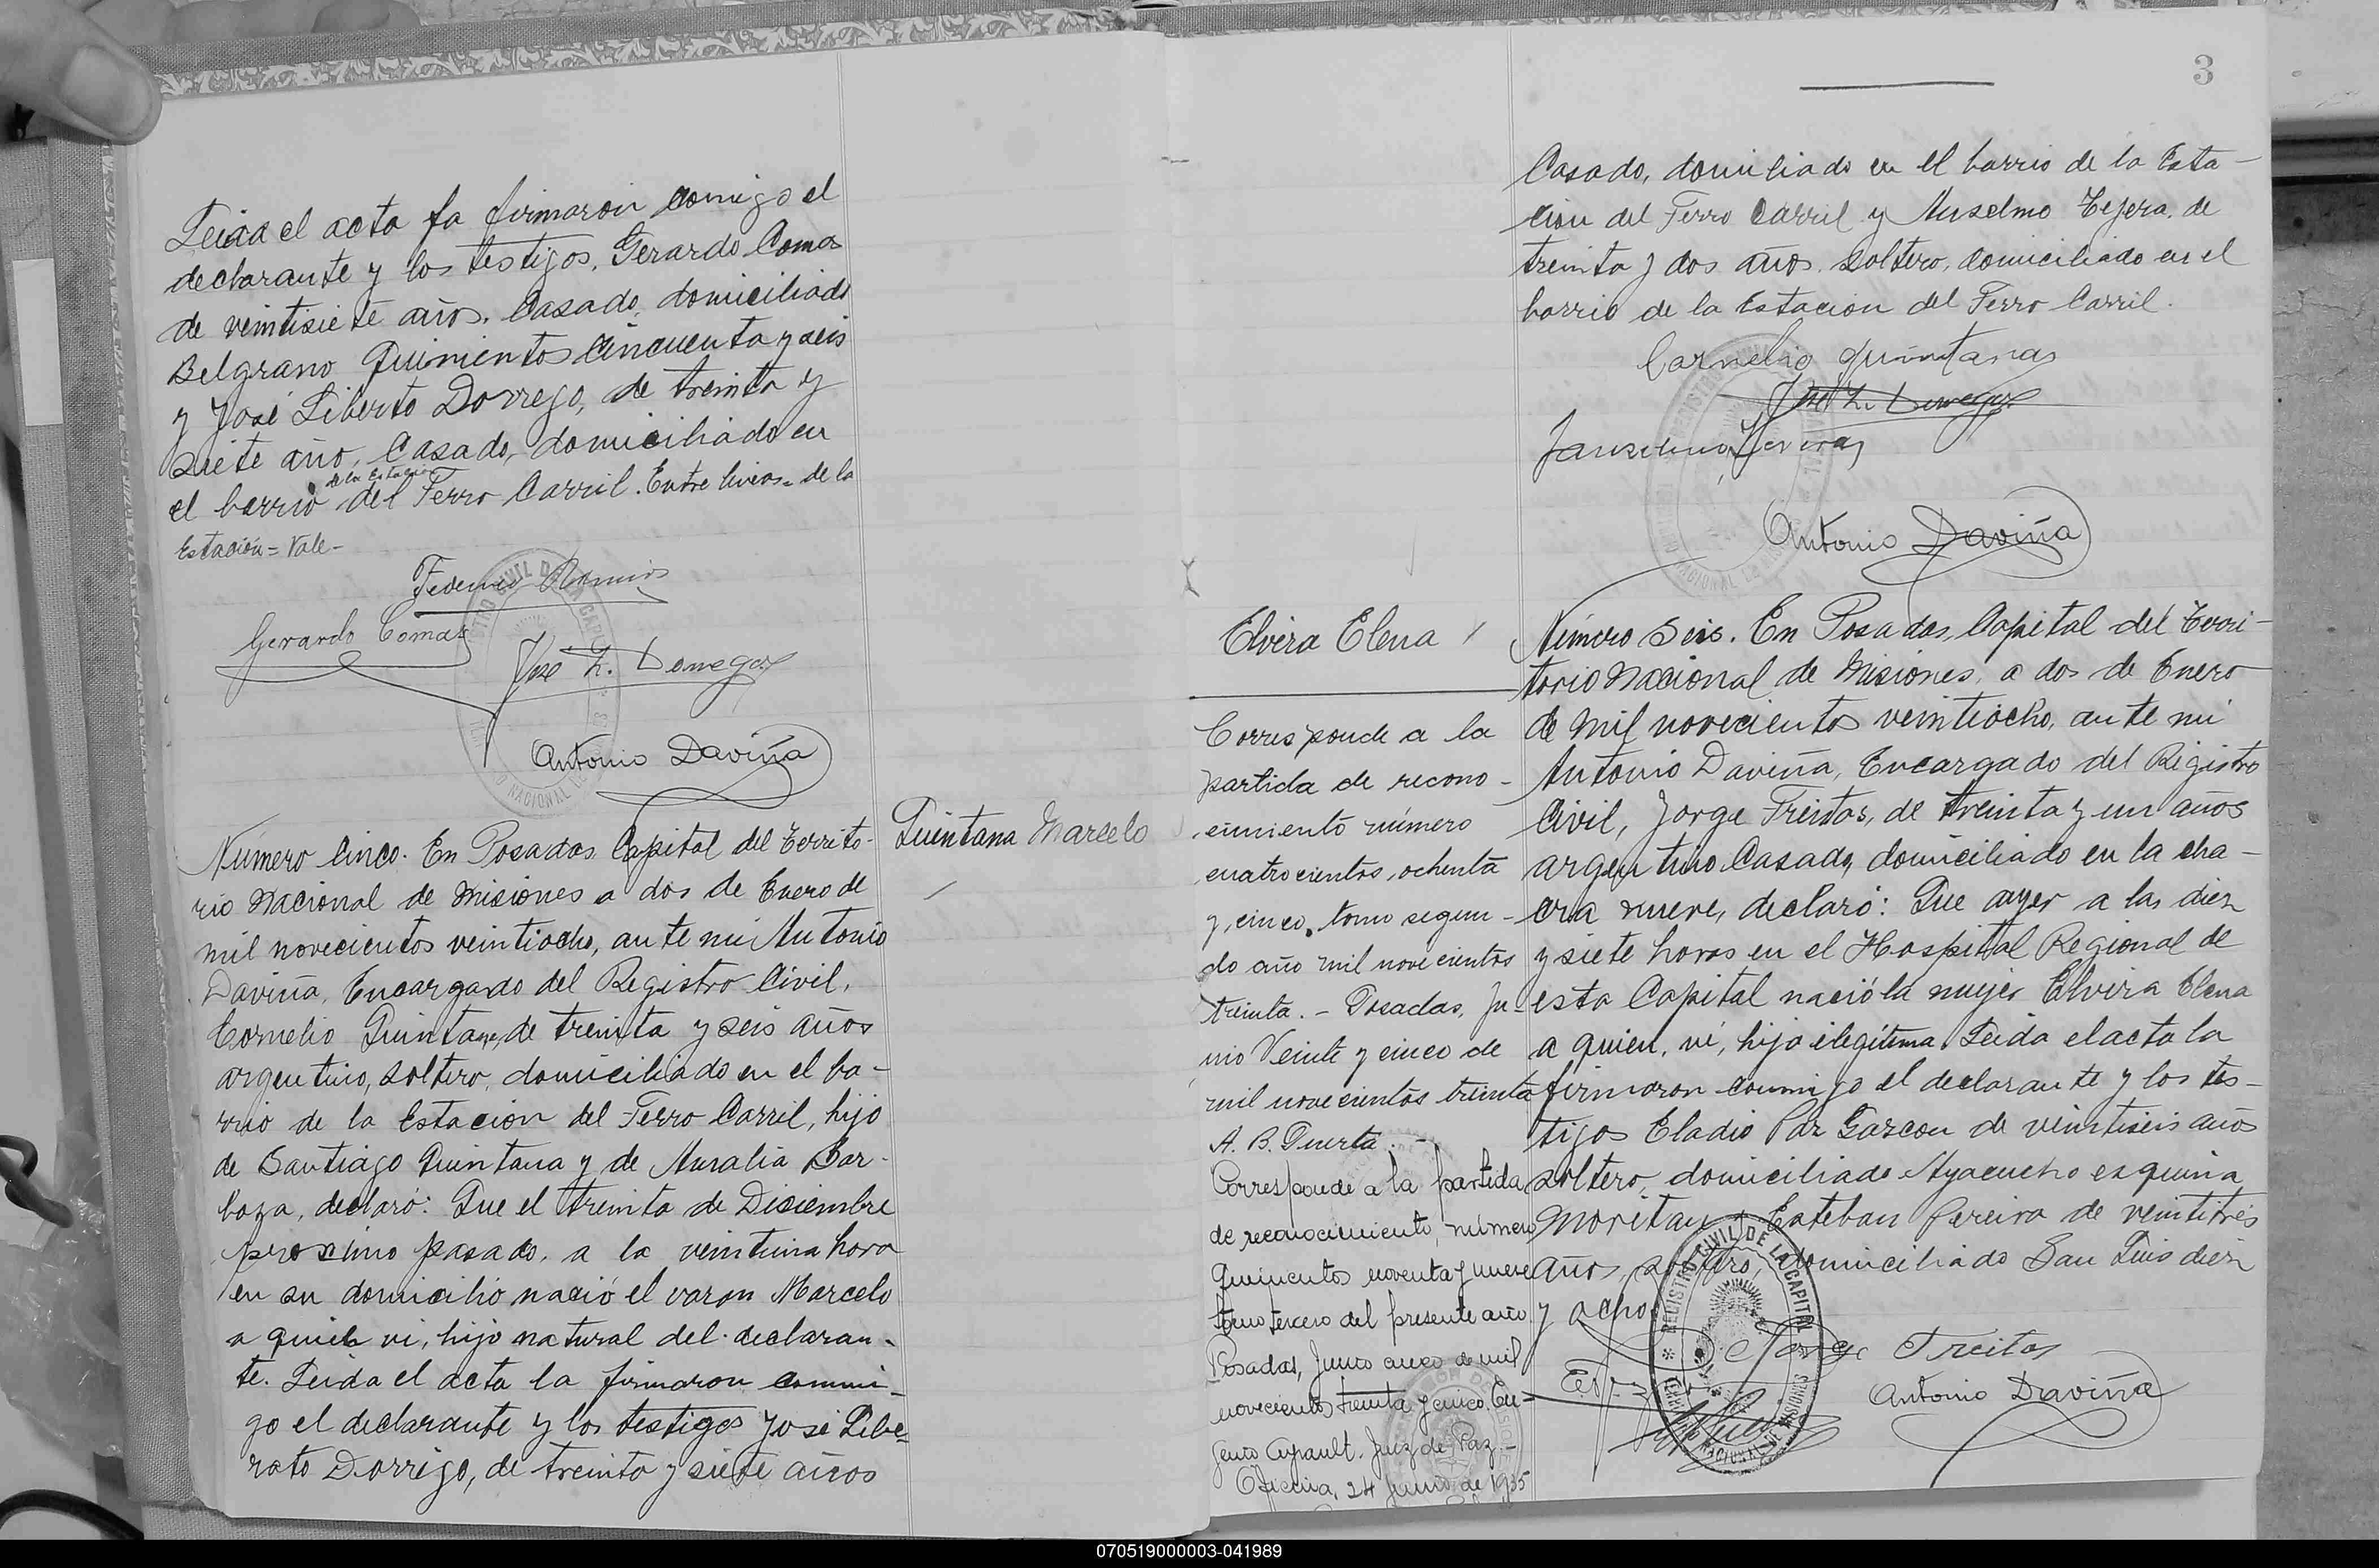 Leida el acta la firmaron comigo el
declarante y los testigos, Gerardo Comas
de veintisiete años, Casado, domiciliado
Belgrano Quinientos Cincuenta y seis
y José Liberto Dorrego, de treinta y
siete año, Casado, domiciliado en
de la Estación
el barrio del Ferro Carril. Entre lineas = de la
Estación = Vale -
Gerardo Comas
José L. Dorrego
Antonio Daviña
Quintana Marcelo
Número Cinco. En Posadas Capital del Territo-
rio Nacional de Misiones a dos de Enero de
mil novecientos veintiocho, ante mi Antonio
Daviña, Encargado del Registro Civil,
Cornelio Quintana, de treinta y seis años
argentino, soltero, domiciliado en el ba-
rrio de la Estacion del Ferro Carril, hijo
de Santiago Quintana y de Auralia Bar-
boza, declaró: Que el treinta de Disiembre
proximo pasado, a la veintiuna hora
en su domicilio nació el varon Marcelo
a quien vi, hijo natural del declaran-
te. Leida el acta la firmaron conmi-
go el declarante y los testigos José Libe-
rato Dorrego, de treinta y siete años
3
Casado, domiliado en el barrio de la Esta-
cion del Ferro Carril y Anselmo Tejera, de
treinta y dos años, soltero, domiciliado en el
barrio de la Estacion del Ferro Carril.
Cornelio quintanas
José L. Dorrego
Antonio Daviña
Elvira Elena
Número Seis. En Posadas, Capital del Terri-
torio Nacional de Misiones, a dos de Enero
de mil novecientos veintiocho, ante mi
Antonio Daviña, Encargado del Registro
Civil, Jorge Freitas, de treinta y un años
argentino Casado, domiciliado en la cha-
cra nueve, declaró: Que ayer a las diez
y siete horas en el Hospital Regional de
esta Capital nació la mujer Elvira Elena
a quien, vi, hija ilegítima. Leida el acta la
firmaron conmigo el declarante y los tes-
tigos Eladio Paz Gascon de veintiseis años
soltero, domiciliado Ayacucho esquina
Moritan y Esteban Pereira de veintitres
años, soltero, domiciliado San Luis diez
y ocho.
Jorge Freitas
Antonio Daviña
Corresponde a la
partida de recono-
cimiento número
cuatrocientos, ochenta
y, cinco, tomo segun-
do año mil novecientos
treinta. - Posadas, Ju-
nio Veinte y cinco de
mil novecientos treinta
A. B. Puerta. -
Corresponde a la partida
de reconocimiento, número
quinientos noventa y nueve
tomo tercero del presente año
Posadas, Junio cinco de mil
novecientos treinta y cinco. Eu-
genio Juez de Paz. -
Oficina, 24 Junio de 1935
REGISTRO CIVIL DE LA CAPITAL
070519000003-041989